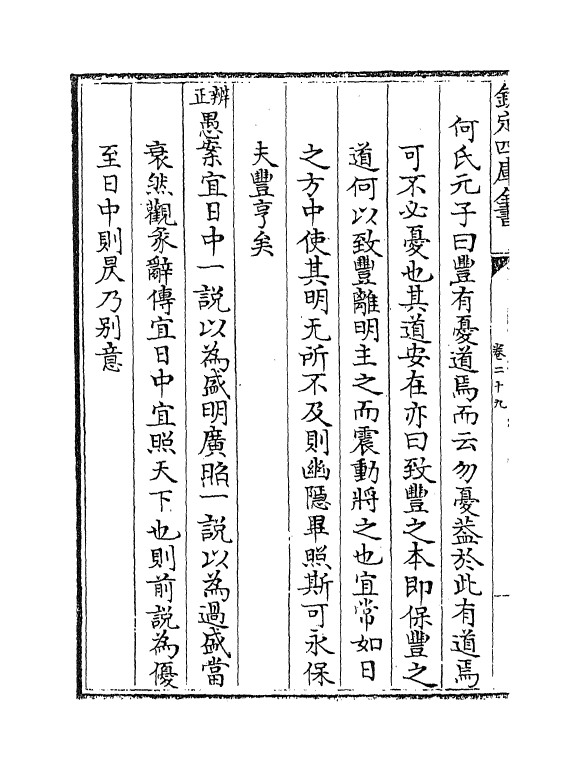 欽定四庫全書
卷二十九
何氏元子曰豐有憂道焉而云勿憂葢於此有道焉
可不必憂也其道安在亦曰致豐之本即保豐之
道何以致豐離明主之而震動將之也宜常如日
之方中使其明无所不及則幽隱畢照斯可永保
夫豐亨矣
辨正愚案宜日中一説以為盛明廣照一説以為過盛當
衰然觀彖辭傳宜日中宜照天下也則前説為優
至日中則昃乃别意